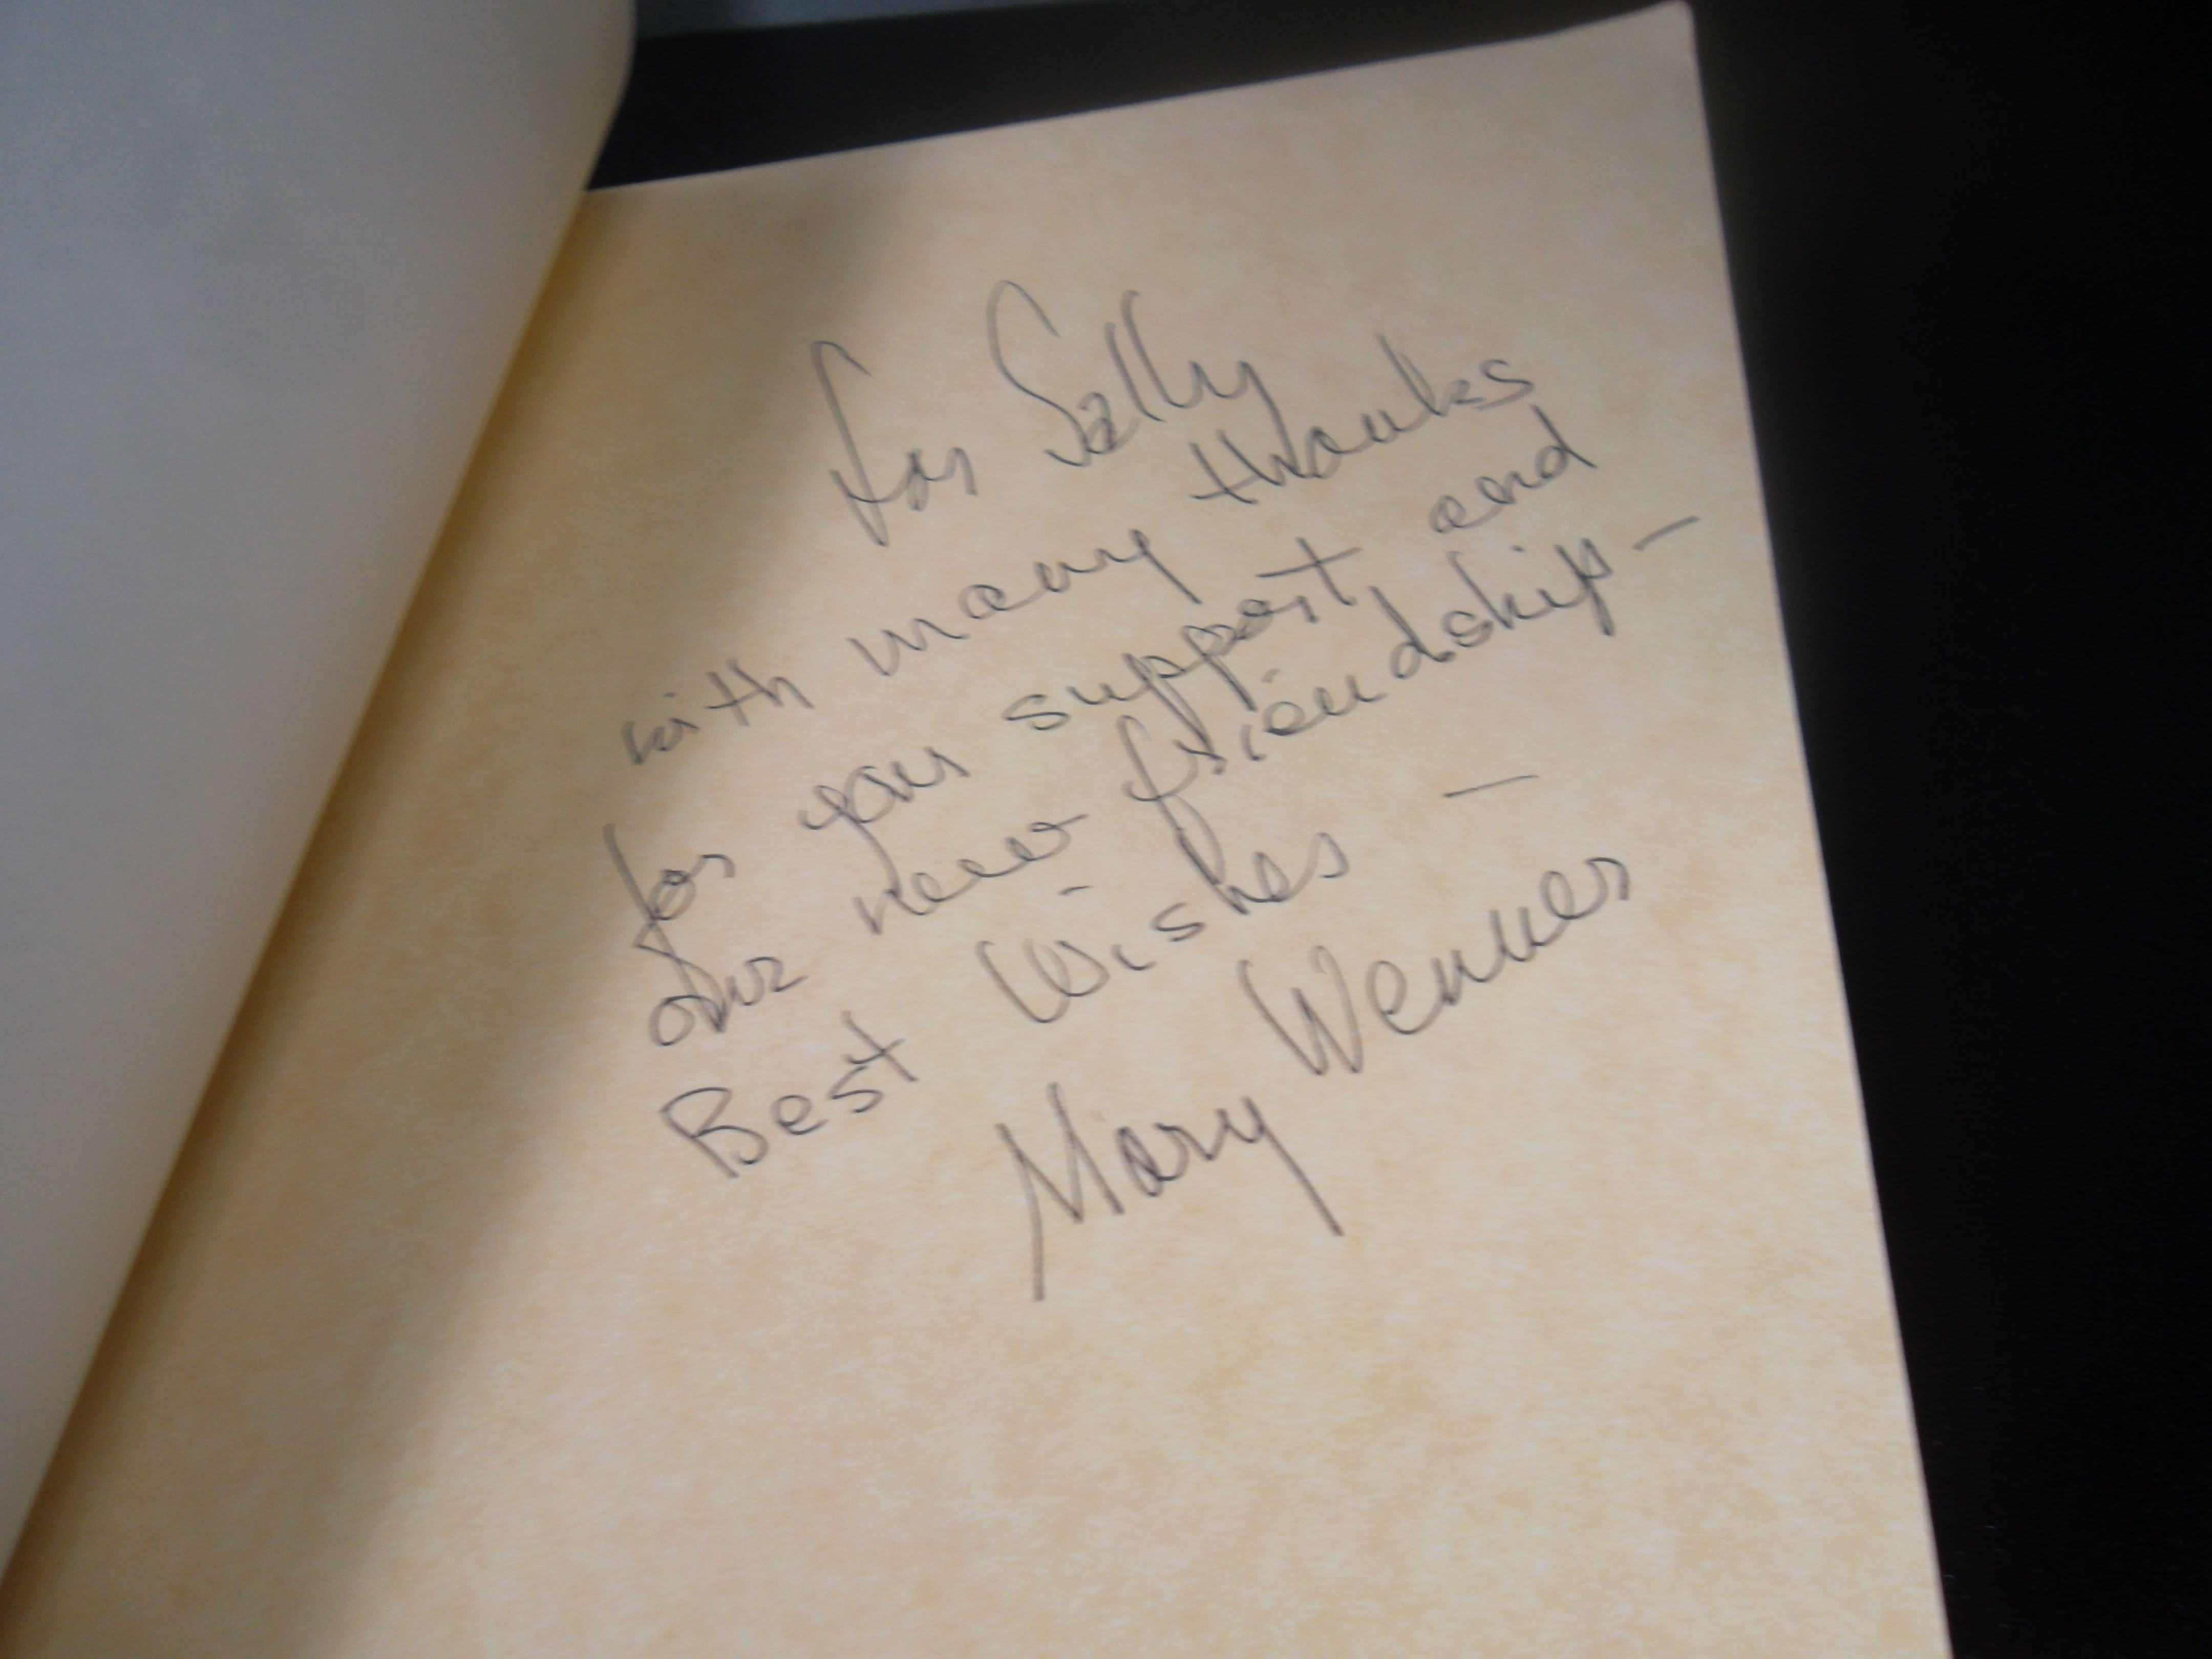 for Sally
with many thanks
for your support and
our new friendship —
Best Wishes —
Mary Wenner